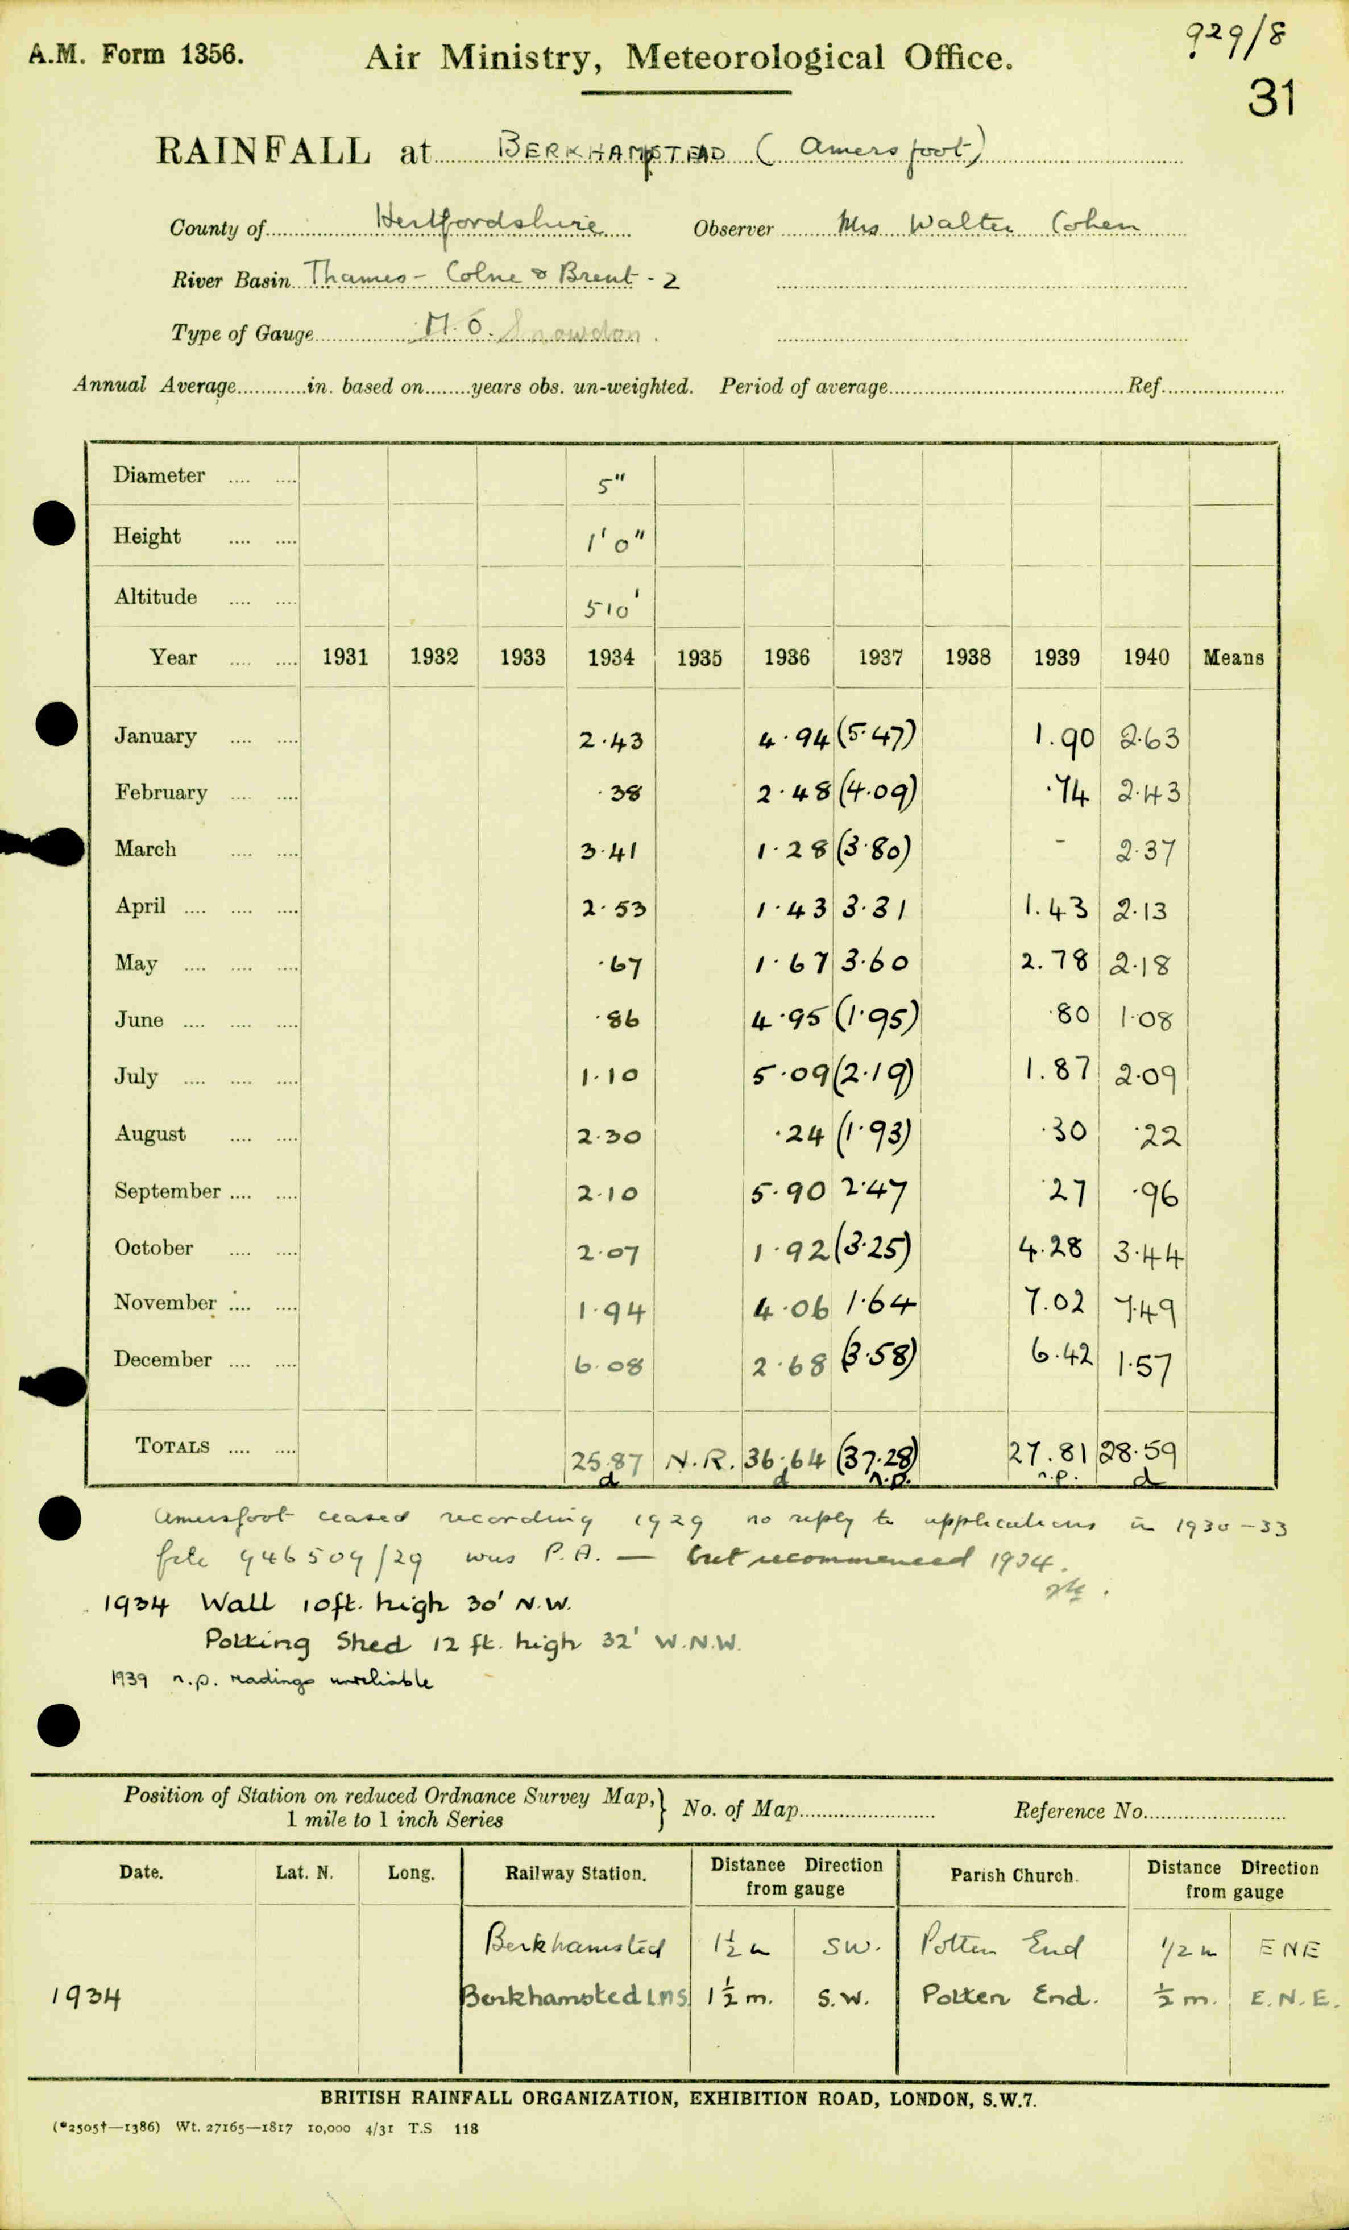 929/8
A.M. Form 1356. Air Ministry, Meteorological Office.
31
RAINFALL at BERKHAMPSTEAD (Amersfoot)
County of Hertfordshire Observer Mrs Walter Cohen
River Basin Thames - Colne & Brent - 2
Type of Gauge M.O. Snowdon.
Annual Average in. based on years obs. un-weighted. Period of average Ref.
Diameter 5"
Height 1' 0"
Altitude 510'
Year 1931 1932 1933 1934 1935 1936 1937 1938 1939 1940 Means
January 2.43 4.94 (5.47) 1.90 2.63
February .38 2.48 (4.09) .74 2.43
March 3.41 1.28 (3.80) - 2.37
April 2.53 1.43 3.31 1.43 2.13
May .67 1.67 3.60 2.78 2.18
June .86 4.95 (1.95) .80 1.08
July 1.10 5.09 (2.19) 1.87 2.09
August 2.30 .24 (1.93) .30 .22
September 2.10 5.90 2.47 .27 .96
October 2.07 1.92 (3.25) 4.28 3.44
November 1.94 4.06 1.64 7.02 7.49
December 6.08 2.68 (3.58) 6.42 1.57
TOTALS 25.87 N.R. 36.64 (37.28) 27.81 28.59
d d n.p. n.p. d
Amersfoot ceased recording 1929 no reply to applications in 1930-33
file 946509/29 was P.A. — but recommenced 1934.
1934 Wall 10ft. high 30' N.W.
Potting Shed 12 ft. high 32' W.N.W.
1939 n.p. readings unreliable
Position of Station on reduced Ordnance Survey Map, 1 mile to 1 inch Series } No. of Map Reference No.
Date. Lat. N. Long. Railway Station. Distance Direction from gauge Parish Church. Distance Direction from gauge
Berkhamsted 1½ m SW. Potten End 1/2 m ENE
1934 Berkhamsted LMS 1½ m. S.W. Potten End. ½ m. E.N.E.
BRITISH RAINFALL ORGANIZATION, EXHIBITION ROAD, LONDON, S.W.7.
(*2505†—1386) Wt. 27165—1817 10,000 4/31 T.S 118